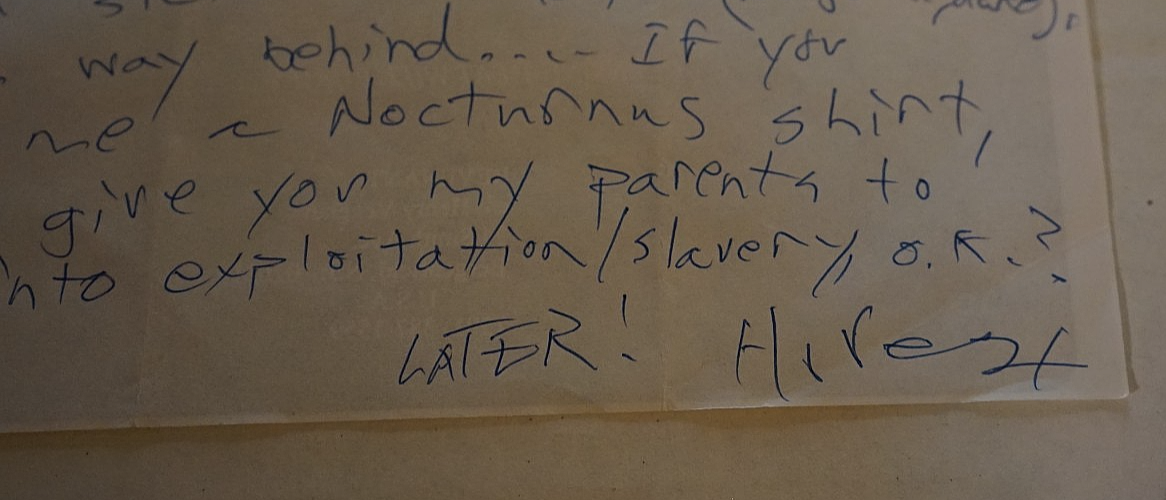 way behind..... If you
me a Nocturnus shirt,
give you my parents to
into exploitation/slavery, o.k.?
LATER!